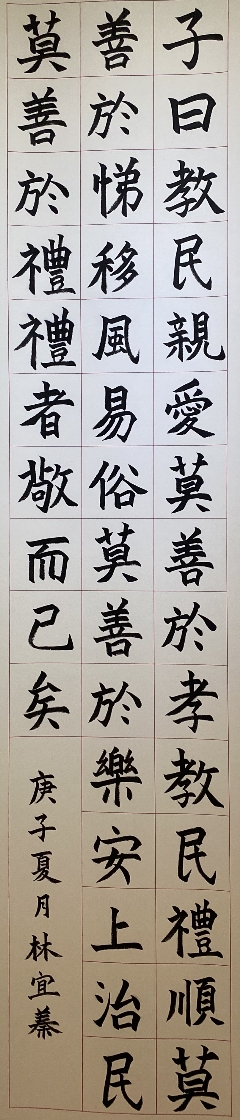 子曰教民親愛莫善於孝教民禮順莫
善於悌移風易俗莫善於樂安上治民
莫善於禮禮者敬而已矣
庚子夏月林宜蓁